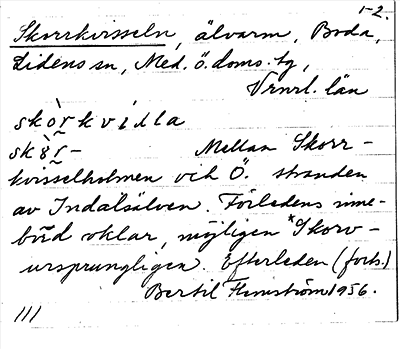 1-2.
Skorrkvisseln, älvarm, Boda,
Lidens sn, Med. ö. doms. tg,
Vrnrl. län
skòrkvislla
skòr- Mellan Skorr-
kvisselholmen och Ö. stranden
av Indalsälven. Förledens inne-
börd oklar, möjligen *Skorv-
ursprungligen. Efterleden (forts.)
Bertil Flemström 1956.
111